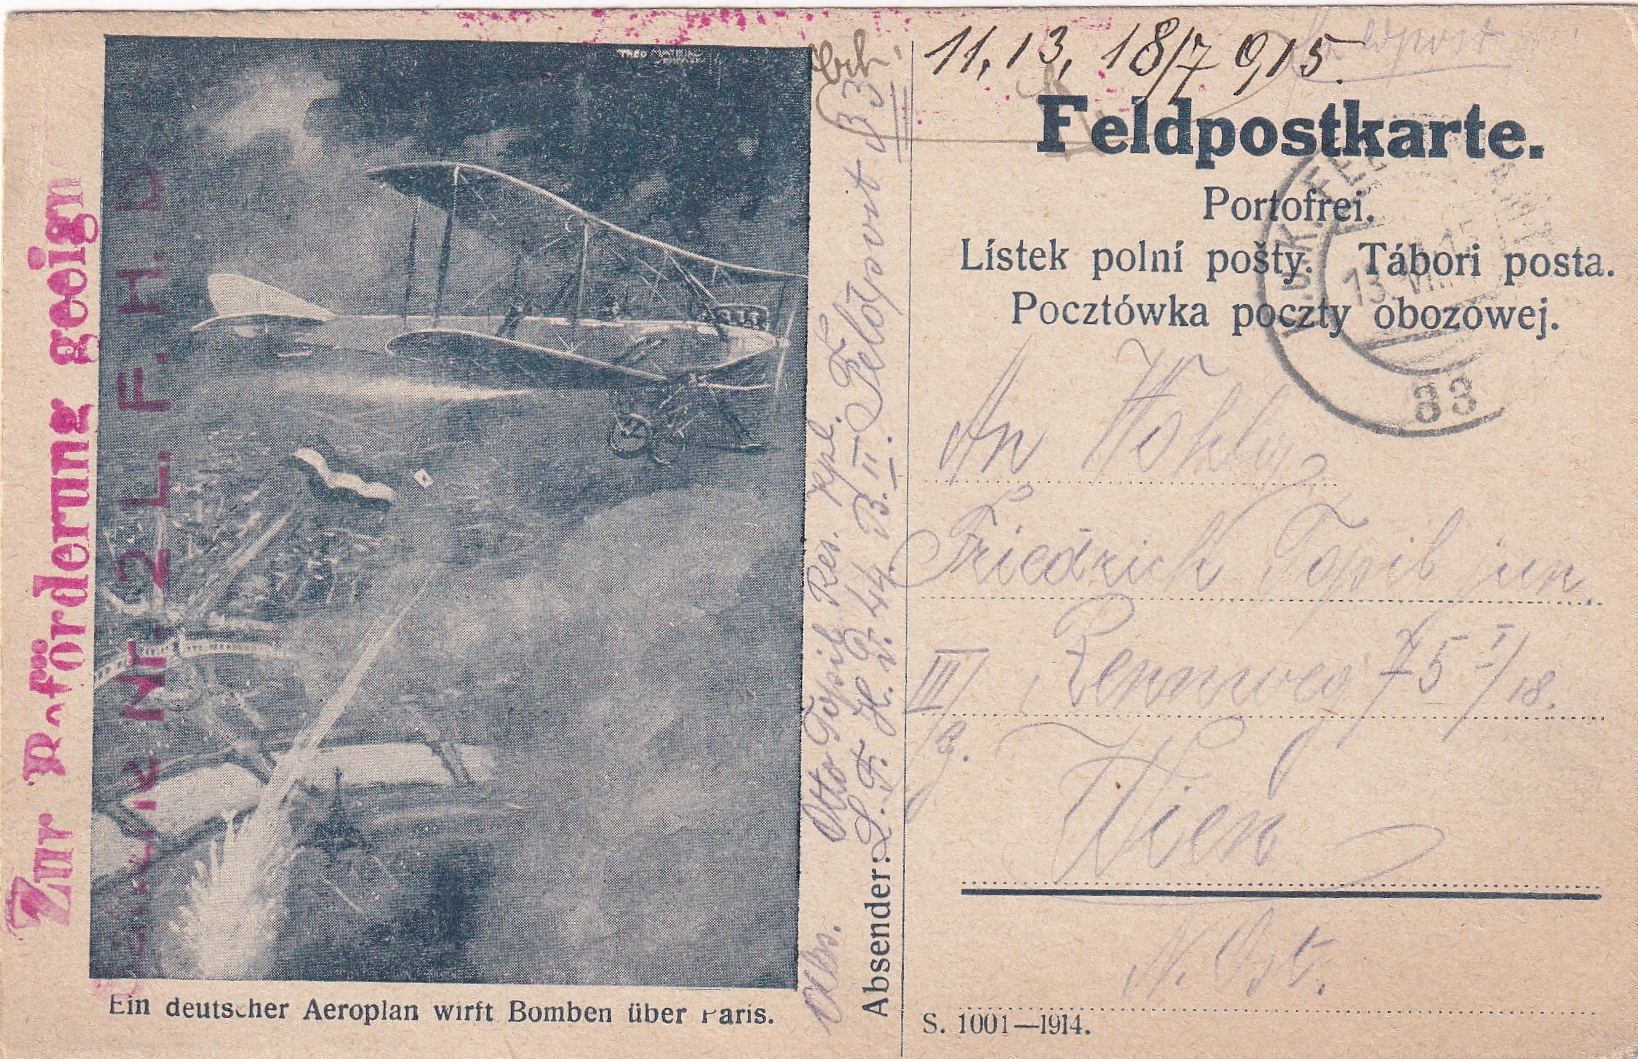 11, 13, 18/7 915.
Feldpostkarte.
Portofrei.
Lístek polní pošty. Tábori posta.
Pocztówka poczty obozowej.
13. VII. 15
83
An
Friedrich Topib jun.
III/ Rennweg 75 I/18.
Wien
N. Öst.
S. 1001—1914.
Absender:
Abs. Otto Topib Res. Kpl.
L. F. H. D. 44 B. II. Feldpost 83
THEO MATEJKO
Zur Beförderung geeign
Nr. 2 L. F. H. D.
Ein deutscher Aeroplan wirft Bomben über Paris.